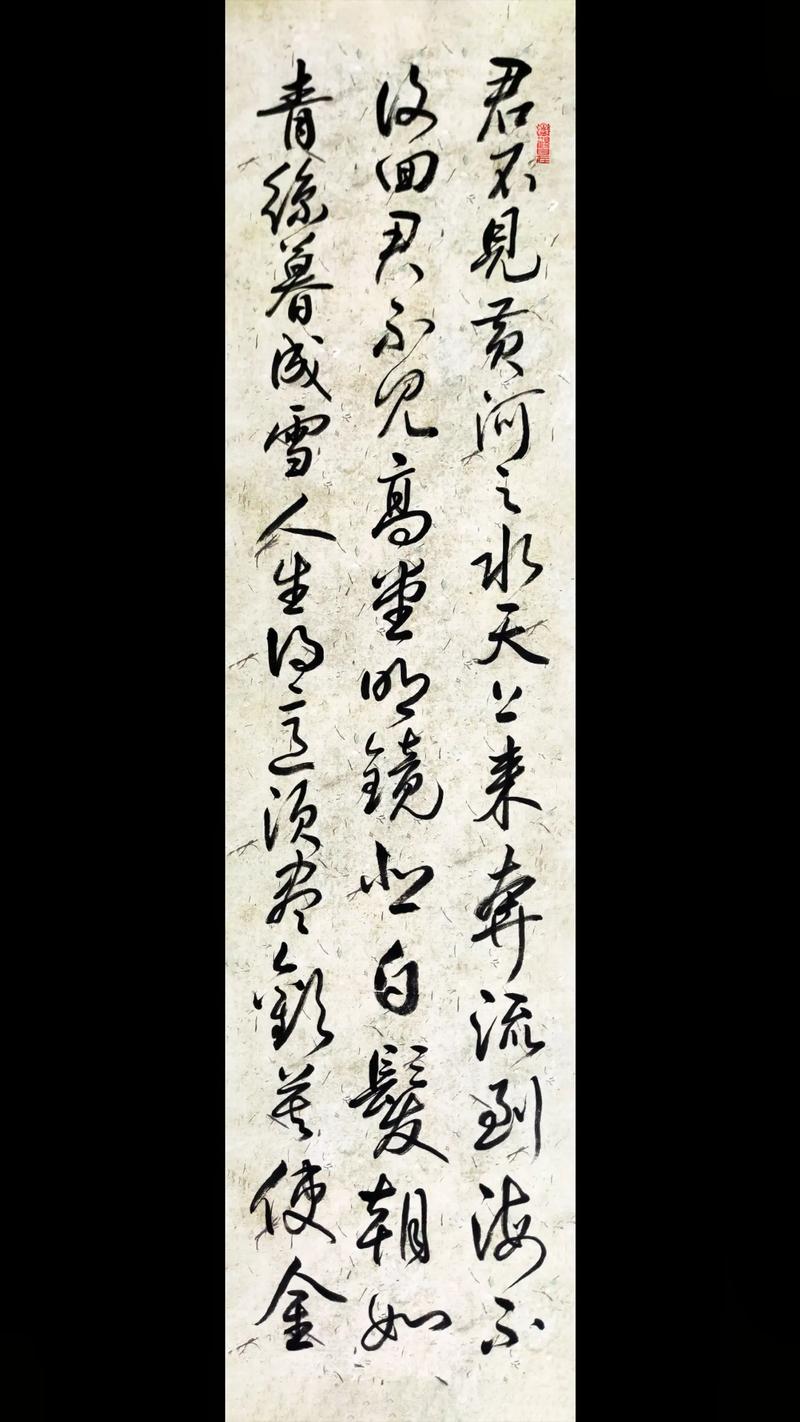 君不見黃河之水天上来奔流到海不
復回君不見高堂明鏡悲白髮朝如
青絲暮成雪人生得意須盡歡莫使金